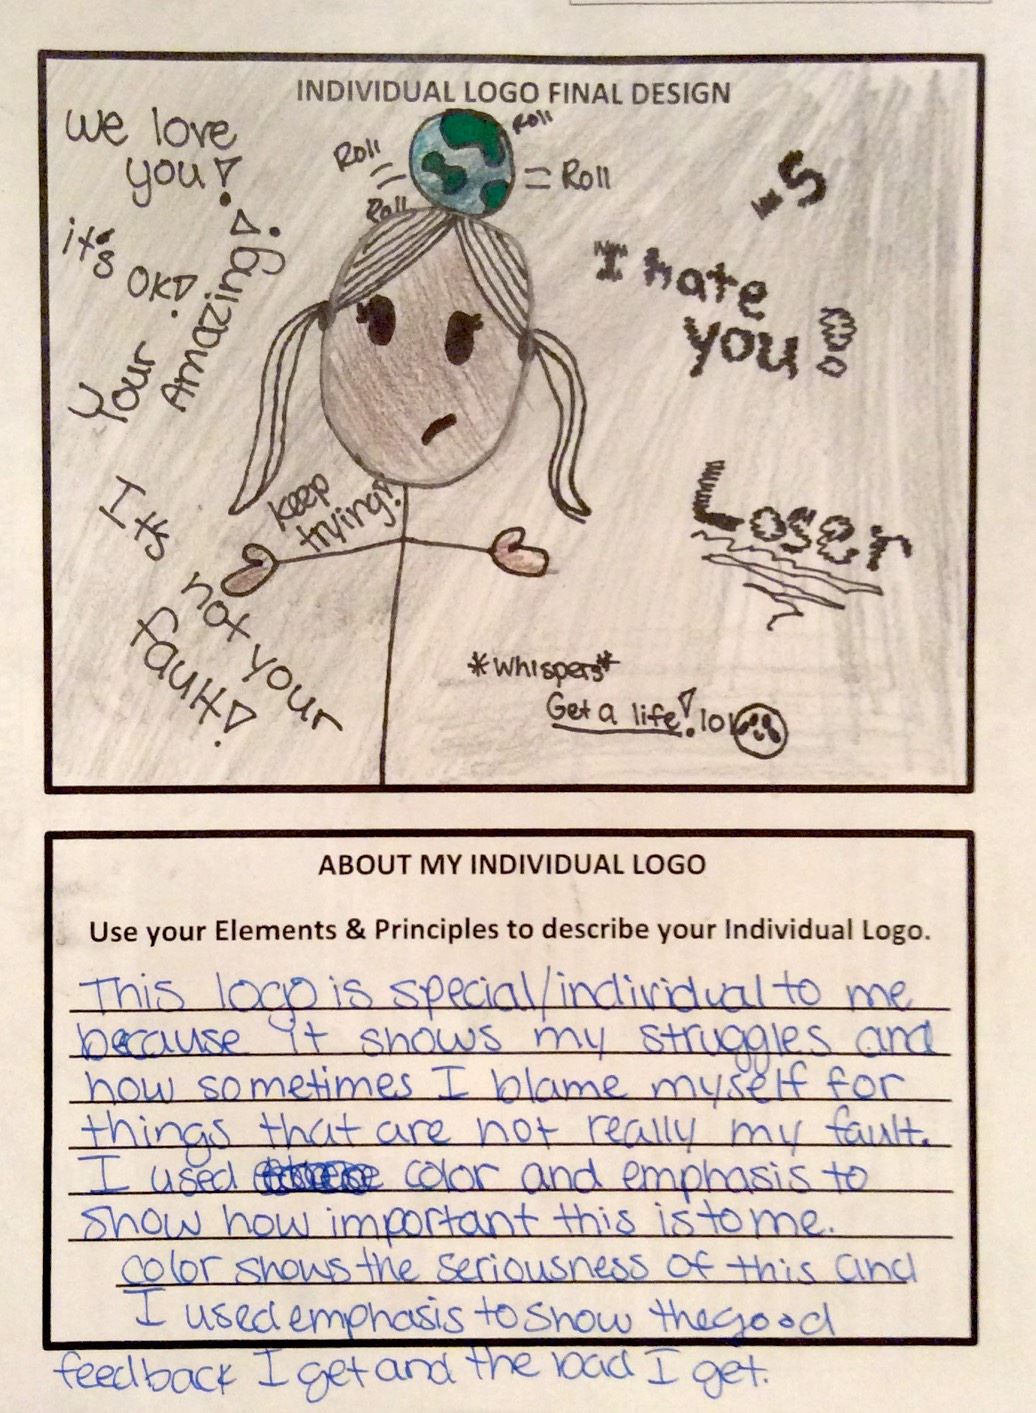 INDIVIDUAL LOGO FINAL DESIGN
we love
you!
it's
OK!
Your
Amazing!
Its
not your
fault!
keep
trying!
Roll
Roll
Roll
Roll
-5
I hate
you!
Loser
*Whispers*
Get a life! lol
ABOUT MY INDIVIDUAL LOGO
Use your Elements & Principles to describe your Individual Logo.
This logo is special/individual to me
because it shows my struggles and
how sometimes I blame myself for
things that are not really my fault.
I used color and emphasis to
show how important this is to me.
color shows the seriousness of this and
I used emphasis to show the good
feedback I get and the bad I get.